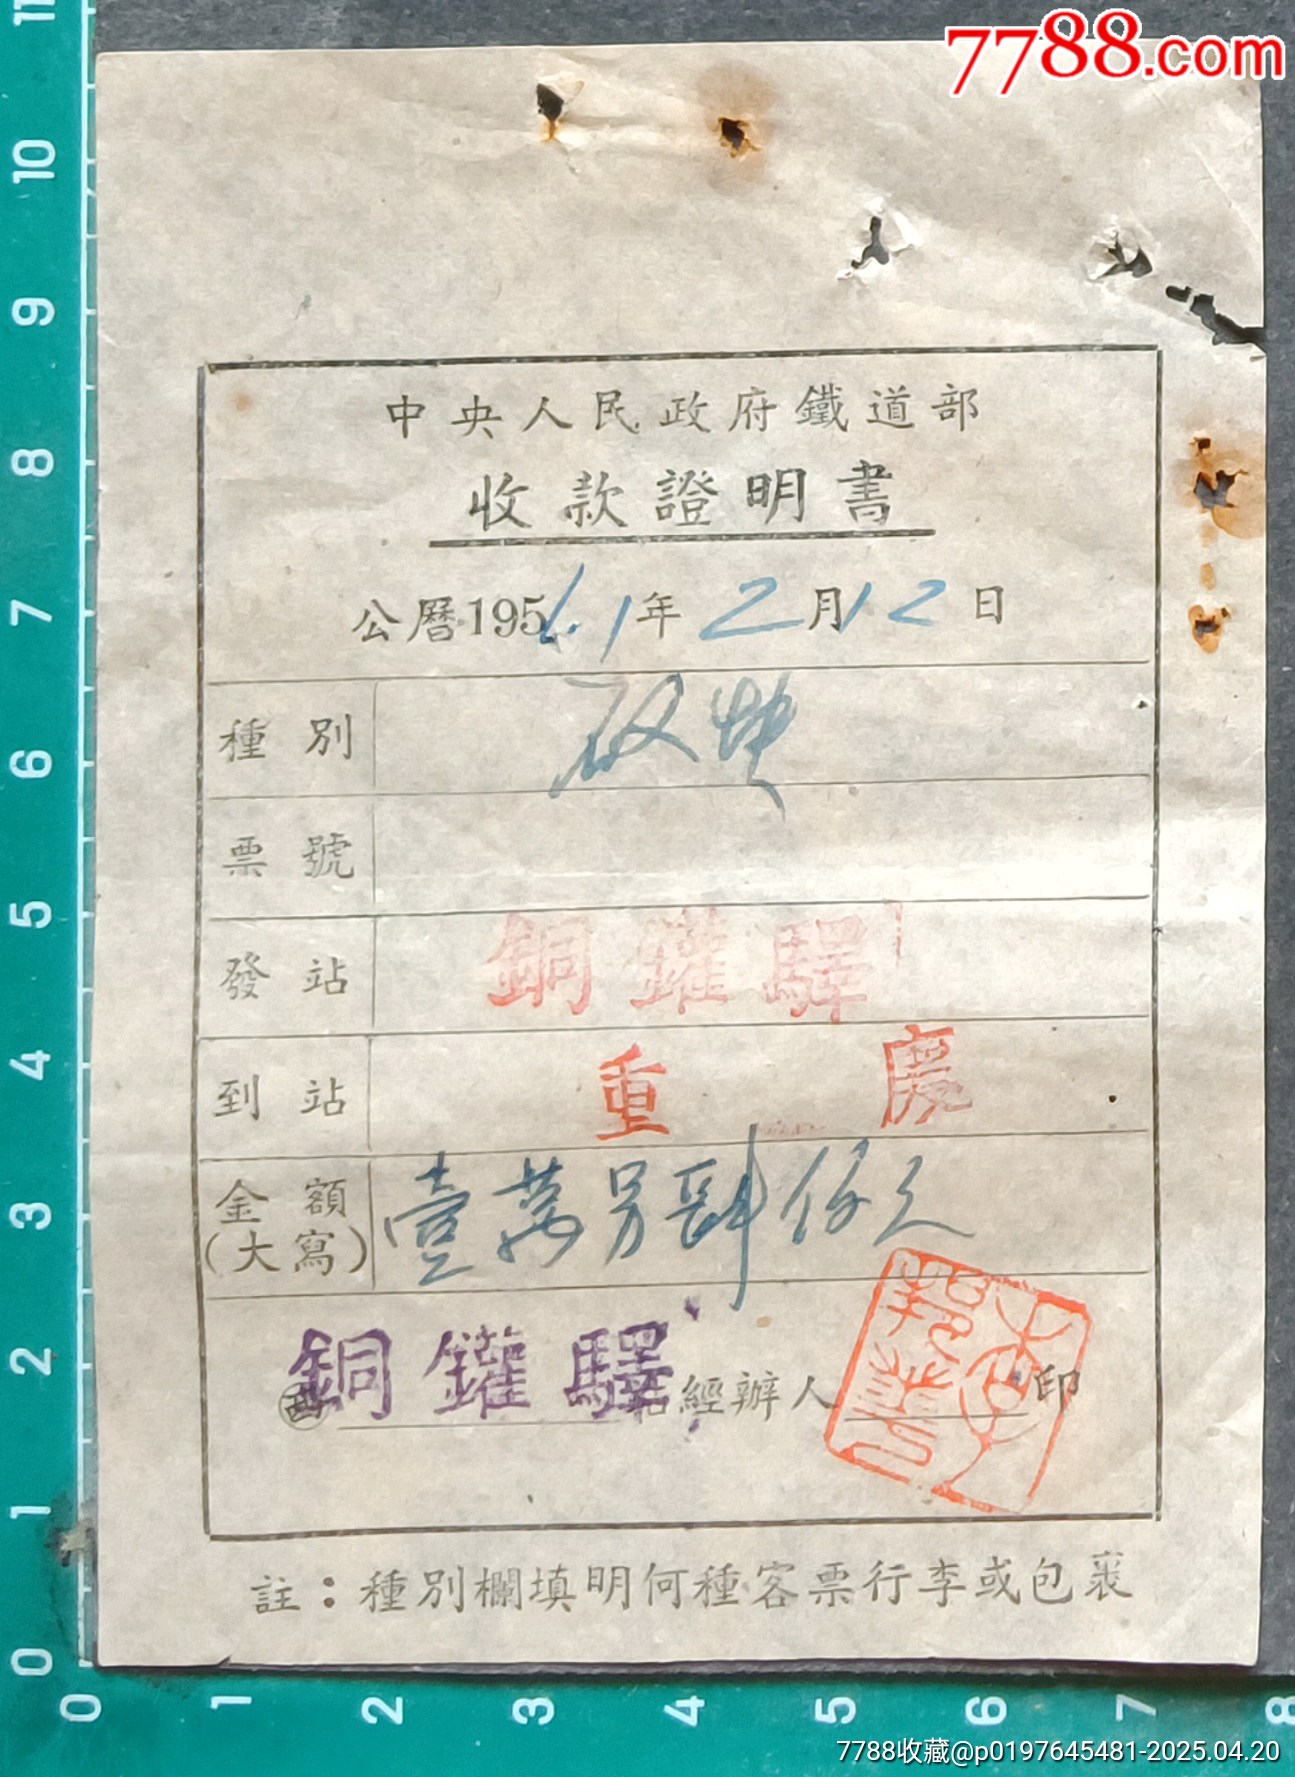 7788.com
中央人民政府鐵道部
收款證明書
公曆195 1年2月12日
種別
票號
發站 銅鑵驛
到站 重慶
金額(大寫) 壹萬另肆佰元
銅鑵驛 站經辦人 印
註：種別欄填明何種客票行李或包裹
11
10
9
8
7
6
5
4
3
2
1
0
0 1 2 3 4 5 6 7 8
7788收藏@p0197645481-2025.04.20